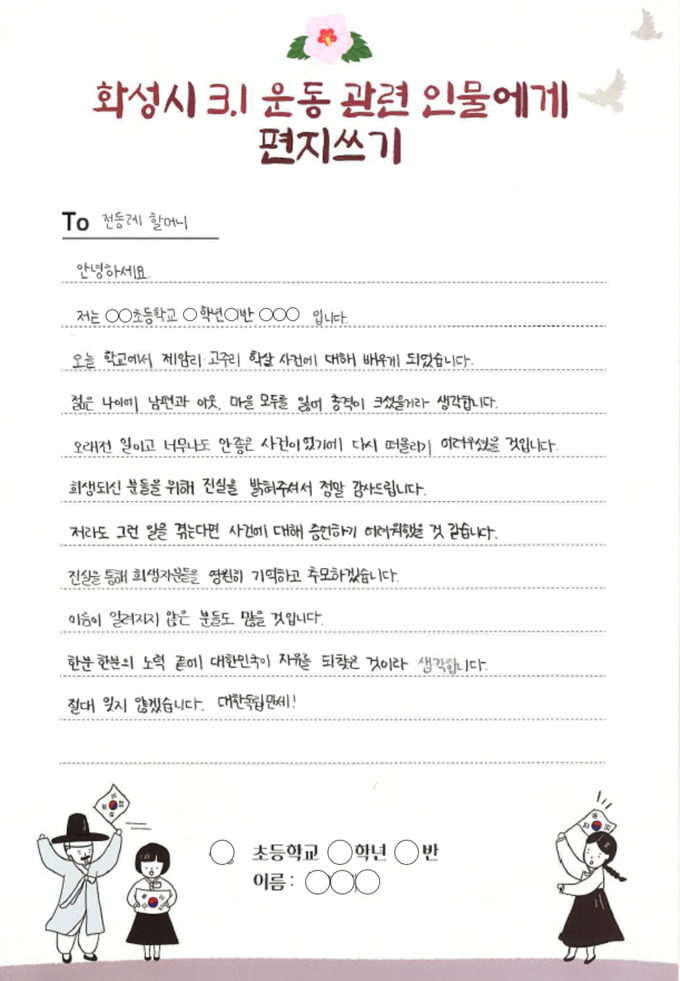 화성시 3.1 운동 관련 인물에게
편지쓰기
To 전동례 할머니
안녕하세요.
저는 ○○초등학교 ○학년○반 ○○○ 입니다.
오늘 학교에서 제암리·고주리 학살 사건에 대해 배우게 되었습니다.
젊은 나이에 남편과 이웃, 마을 모두를 잃어 충격이 크셨을거라 생각합니다.
오래전 일이고 너무나도 안좋은 사건이었기에 다시 떠올리기 어려우셨을 것입니다.
희생되신 분들을 위해 진실을 밝혀주셔서 정말 감사드립니다.
저라도 그런 일을 겪는다면 사건에 대해 증언하기 어려워했을 것 같습니다.
진실을 통해 희생자분들을 영원히 기억하고 추모하겠습니다.
이름이 알려지지 않은 분들도 많을 것입니다.
한분 한분의 노력 끝에 대한민국이 자유를 되찾은 것이라 생각합니다.
절대 잊지 않겠습니다. 대한독립만세!
○ 초등학교 ○학년 ○반
이름 : ○○○